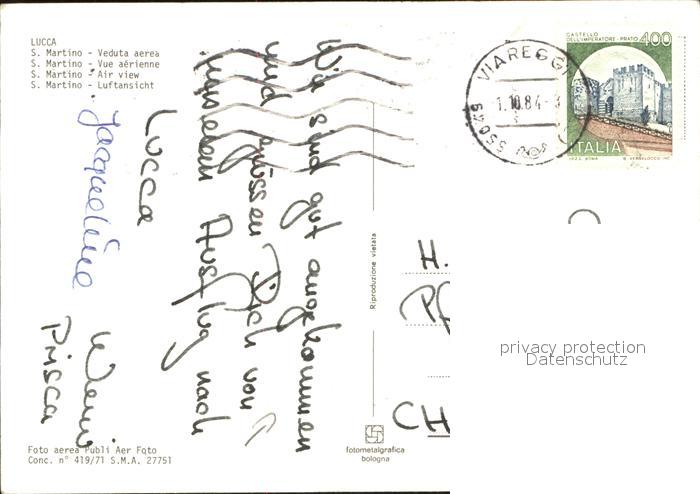 LUCCA
S. Martino - Veduta aerea
S. Martino - Vue aérienne
S. Martino - Air view
S. Martino - Luftansicht
Wir sind gut angekommen
und grüssen Dich von
unserem Ausflug nach
Lucca
Jacqueline
Prisca
Foto aerea Publi Aer Foto
Conc. n° 419/71 S.M.A. 27751
Riproduzione vietata
fotometalgrafica
bologna
CASTELLO
DELL'IMPERATORE - PRATO
400
ITALIA
VIAREGGI
1.10.84
55049
H.
CH
privacy protection
Datenschutz